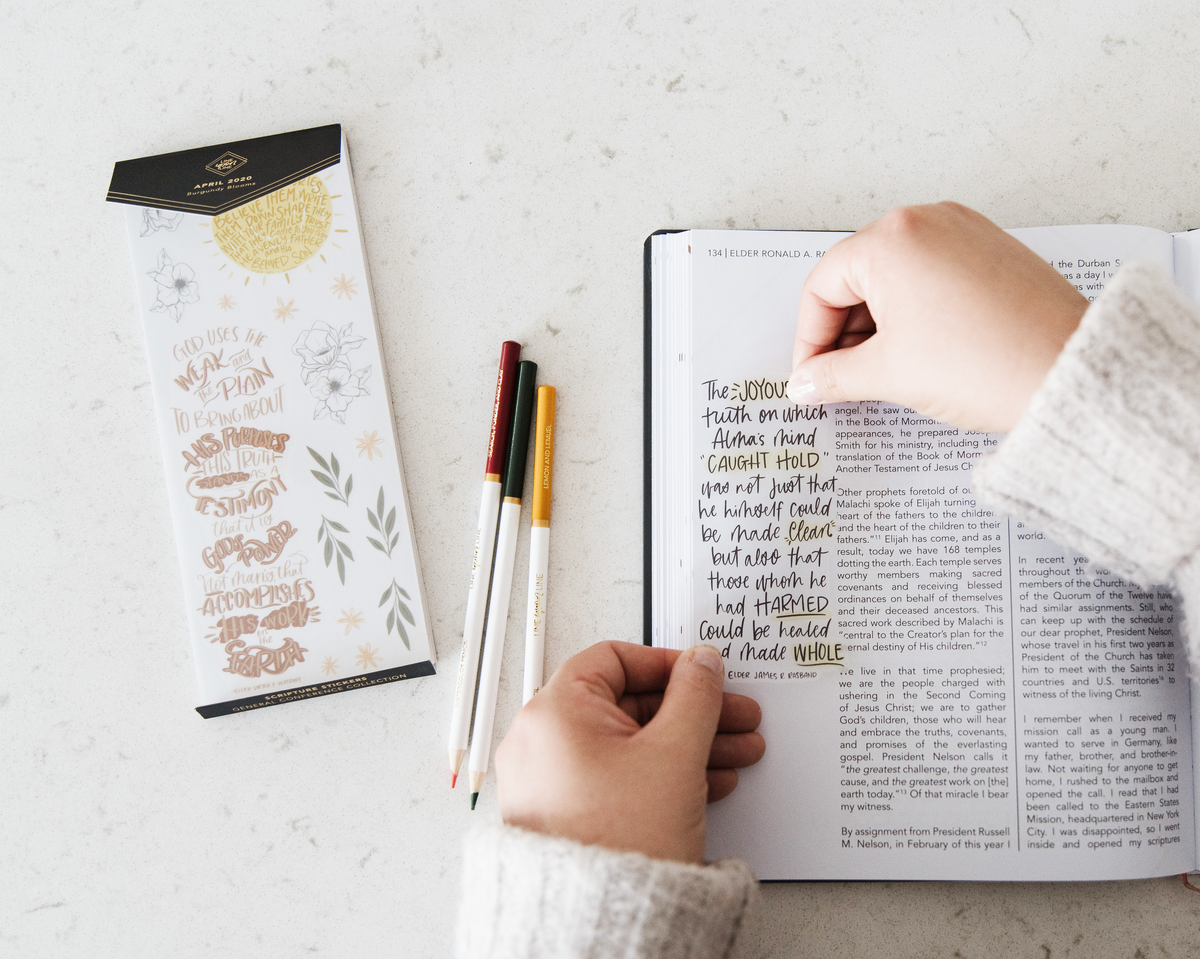 APRIL 2020
Burgundy Blooms
BELIEVE THEM, WRITE
GOD USES THE
WEAK and
the PLAIN
TO BRING ABOUT
HIS PURPOSES
THIS TRUTH
AS A
TESTIMONY
that it is
GOD'S
POWER
Not man's, that
ACCOMPLISHES
HIS WORK
in the
EARTH
SCRIPTURE STICKERS
GENERAL CONFERENCE COLLECTION
LEMON AND LEMUEL
134 | ELDER RONALD A.
The JOYOUS
truth on which
Alma's mind
"CAUGHT HOLD"
was not just that
he himself could
be made Clean
but also that
those whom he
had HARMED
could be healed
made WHOLE
ELDER JAMES R. RASBAND
angel. He saw
in the Book of Mormon
appearances, he prepared Joseph
Smith for his ministry, including the
translation of the Book of
Another Testament of Jesus
Other prophets foretold of
Malachi spoke of Elijah turning
heart of the fathers to the children
and the heart of the children to their
fathers."11 Elijah has come, and as a
result, today we have 168 temples
dotting the earth. Each temple serves
worthy members making sacred
covenants and receiving blessed
ordinances on behalf of themselves
and their deceased ancestors. This
sacred work described by Malachi is
"central to the Creator's plan for the
eternal destiny of His children."12
We live in that time prophesied;
we are the people charged with
ushering in the Second Coming
of Jesus Christ; we are to gather
God's children, those who will hear
and embrace the truths, covenants,
and promises of the everlasting
gospel. President Nelson calls it
"the greatest challenge, the greatest
cause, and the greatest work on [the]
earth today."13 Of that miracle I bear
my witness.
By assignment from President Russell
M. Nelson, in February of this year I
the Durban
as a day I
as with
world.
In recent
throughout the
members of the Church.
of the Quorum of the Twelve have
had similar assignments. Still, who
can keep up with the schedule of
our dear prophet, President Nelson,
whose travel in his first two years as
President of the Church has taken
him to meet with the Saints in 32
countries and U.S. territories14 to
witness of the living Christ.
I remember when I received my
mission call as a young man. I
wanted to serve in Germany, like
my father, brother, and brother-in-
law. Not waiting for anyone to get
home, I rushed to the mailbox and
opened the call. I read that I had
been called to the Eastern States
Mission, headquartered in New York
City. I was disappointed, so I went
inside and opened my scriptures